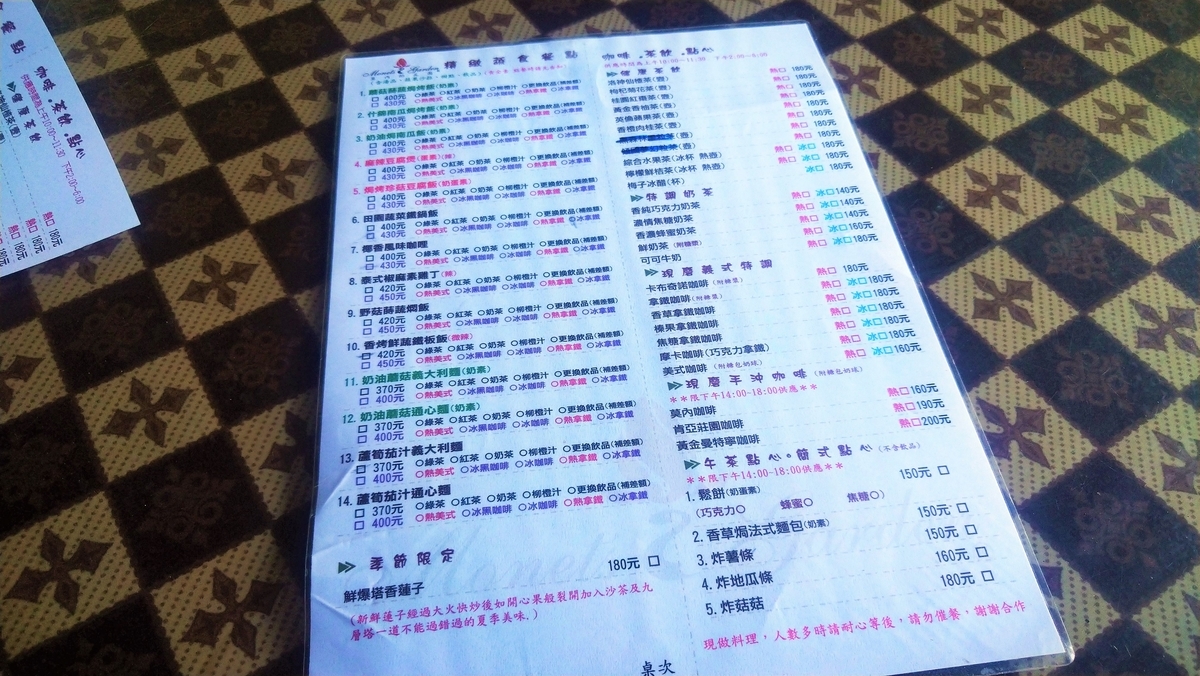 精緻蔬食餐點
1. 蘑菇蒔蔬焗烤飯(奶素)
□ 400元 ○綠茶 ○紅茶 ○奶茶 ○柳橙汁 ○更換飲品(補差額)
□ 430元 ○熱美式 ○冰黑咖啡 ○冰咖啡 ○熱拿鐵 ○冰拿鐵
2. 什錦南瓜焗烤飯(奶素)
□ 400元 ○綠茶 ○紅茶 ○奶茶 ○柳橙汁 ○更換飲品(補差額)
□ 430元 ○熱美式 ○冰黑咖啡 ○冰咖啡 ○熱拿鐵 ○冰拿鐵
3. 奶油焗南瓜飯(奶素)
□ 400元 ○綠茶 ○紅茶 ○奶茶 ○柳橙汁 ○更換飲品(補差額)
□ 430元 ○熱美式 ○冰黑咖啡 ○冰咖啡 ○熱拿鐵 ○冰拿鐵
4. 麻辣豆腐煲(蛋素)(辣)
□ 400元 ○綠茶 ○紅茶 ○奶茶 ○柳橙汁 ○更換飲品(補差額)
□ 430元 ○熱美式 ○冰黑咖啡 ○冰咖啡 ○熱拿鐵 ○冰拿鐵
5. 焗烤珍菇豆腐飯(奶蛋素)
□ 400元 ○綠茶 ○紅茶 ○奶茶 ○柳橙汁 ○更換飲品(補差額)
□ 430元 ○熱美式 ○冰黑咖啡 ○冰咖啡 ○熱拿鐵 ○冰拿鐵
6. 田園蔬菜鐵鍋飯
□ 400元 ○綠茶 ○紅茶 ○奶茶 ○柳橙汁 ○更換飲品(補差額)
□ 430元 ○熱美式 ○冰黑咖啡 ○冰咖啡 ○熱拿鐵 ○冰拿鐵
7. 椰香風味咖哩
□ 400元 ○綠茶 ○紅茶 ○奶茶 ○柳橙汁 ○更換飲品(補差額)
□ 430元 ○熱美式 ○冰黑咖啡 ○冰咖啡 ○熱拿鐵 ○冰拿鐵
8. 泰式椒麻素雞丁(辣)
□ 420元 ○綠茶 ○紅茶 ○奶茶 ○柳橙汁 ○更換飲品(補差額)
□ 450元 ○熱美式 ○冰黑咖啡 ○冰咖啡 ○熱拿鐵 ○冰拿鐵
9. 野菇蒔蔬燜飯
□ 420元 ○綠茶 ○紅茶 ○奶茶 ○柳橙汁 ○更換飲品(補差額)
□ 450元 ○熱美式 ○冰黑咖啡 ○冰咖啡 ○熱拿鐵 ○冰拿鐵
10. 香烤鮮蔬鐵板飯(微辣)
□ 420元 ○綠茶 ○紅茶 ○奶茶 ○柳橙汁 ○更換飲品(補差額)
□ 450元 ○熱美式 ○冰黑咖啡 ○冰咖啡 ○熱拿鐵 ○冰拿鐵
11. 奶油蘑菇義大利麵(奶素)
□ 370元 ○綠茶 ○紅茶 ○奶茶 ○柳橙汁 ○更換飲品(補差額)
□ 400元 ○熱美式 ○冰黑咖啡 ○冰咖啡 ○熱拿鐵 ○冰拿鐵
12. 奶油蘑菇通心麵(奶素)
□ 370元 ○綠茶 ○紅茶 ○奶茶 ○柳橙汁 ○更換飲品(補差額)
□ 400元 ○熱美式 ○冰黑咖啡 ○冰咖啡 ○熱拿鐵 ○冰拿鐵
13. 蘆筍茄汁義大利麵
□ 370元 ○綠茶 ○紅茶 ○奶茶 ○柳橙汁 ○更換飲品(補差額)
□ 400元 ○熱美式 ○冰黑咖啡 ○冰咖啡 ○熱拿鐵 ○冰拿鐵
14. 蘆筍茄汁通心麵
□ 370元 ○綠茶 ○紅茶 ○奶茶 ○柳橙汁 ○更換飲品(補差額)
□ 400元 ○熱美式 ○冰黑咖啡 ○冰咖啡 ○熱拿鐵 ○冰拿鐵
季節限定
鮮爆塔香蓮子 180元 □
(新鮮蓮子經過大火快炒後如開心果般裂開加入沙茶及九
層塔一道不能過錯過的夏季美味.)
咖啡.茶飲.點心
健康茶飲
洛神仙楂茶(壺) 熱□ 180元
枸杞菊花茶(壺) 熱□ 180元
桂圓紅棗茶(壺) 熱□ 180元
黃金香柚茶(壺) 熱□ 180元
英倫蘋果茶(壺) 熱□ 180元
香橙肉桂茶(壺) 熱□ 180元
綜合水果茶(冰杯 熱壺) 熱□ 冰□ 180元
檸檬鮮桔茶(冰杯 熱壺) 熱□ 冰□ 180元
梅子冰醋(杯) 冰□ 180元
特調奶茶
香純巧克力奶茶 熱□ 冰□ 140元
濃情焦糖奶茶 熱□ 冰□ 140元
香濃蜂蜜奶茶 熱□ 冰□ 140元
鮮奶茶(附糖漿) 熱□ 冰□ 160元
可可牛奶 熱□ 冰□ 180元
現磨義式特調
卡布奇諾咖啡(附糖漿) 熱□ 180元
拿鐵咖啡(附糖漿) 熱□ 冰□ 180元
香草拿鐵咖啡 熱□ 冰□ 180元
榛果拿鐵咖啡 熱□ 冰□ 180元
焦糖拿鐵咖啡 熱□ 冰□ 180元
摩卡咖啡(巧克力拿鐵) 熱□ 冰□ 180元
美式咖啡(附糖包奶球) 熱□ 冰□ 160元
現磨手沖咖啡(附糖包奶球)
**限下午14:00-18:00供應**
莫內咖啡 熱□ 160元
肯亞莊園咖啡 熱□ 190元
黃金曼特寧咖啡 熱□ 200元
午茶點心。簡式點心(不含飲品)
**限下午14:00-18:00供應**
1. 鬆餅(奶蛋素) 150元 □
(巧克力○ 蜂蜜○ 焦糖○)
2. 香草焗法式麵包(奶素) 150元 □
3. 炸薯條 150元 □
4. 炸地瓜條 160元 □
5. 炸菇菇 180元 □
現做料理，人數多時請耐心等後，請勿催餐，謝謝合作
桌次
餐點
咖啡.茶飲.點心
下午2:00~6:00
健康茶飲
熱□ 180元
熱□ 180元